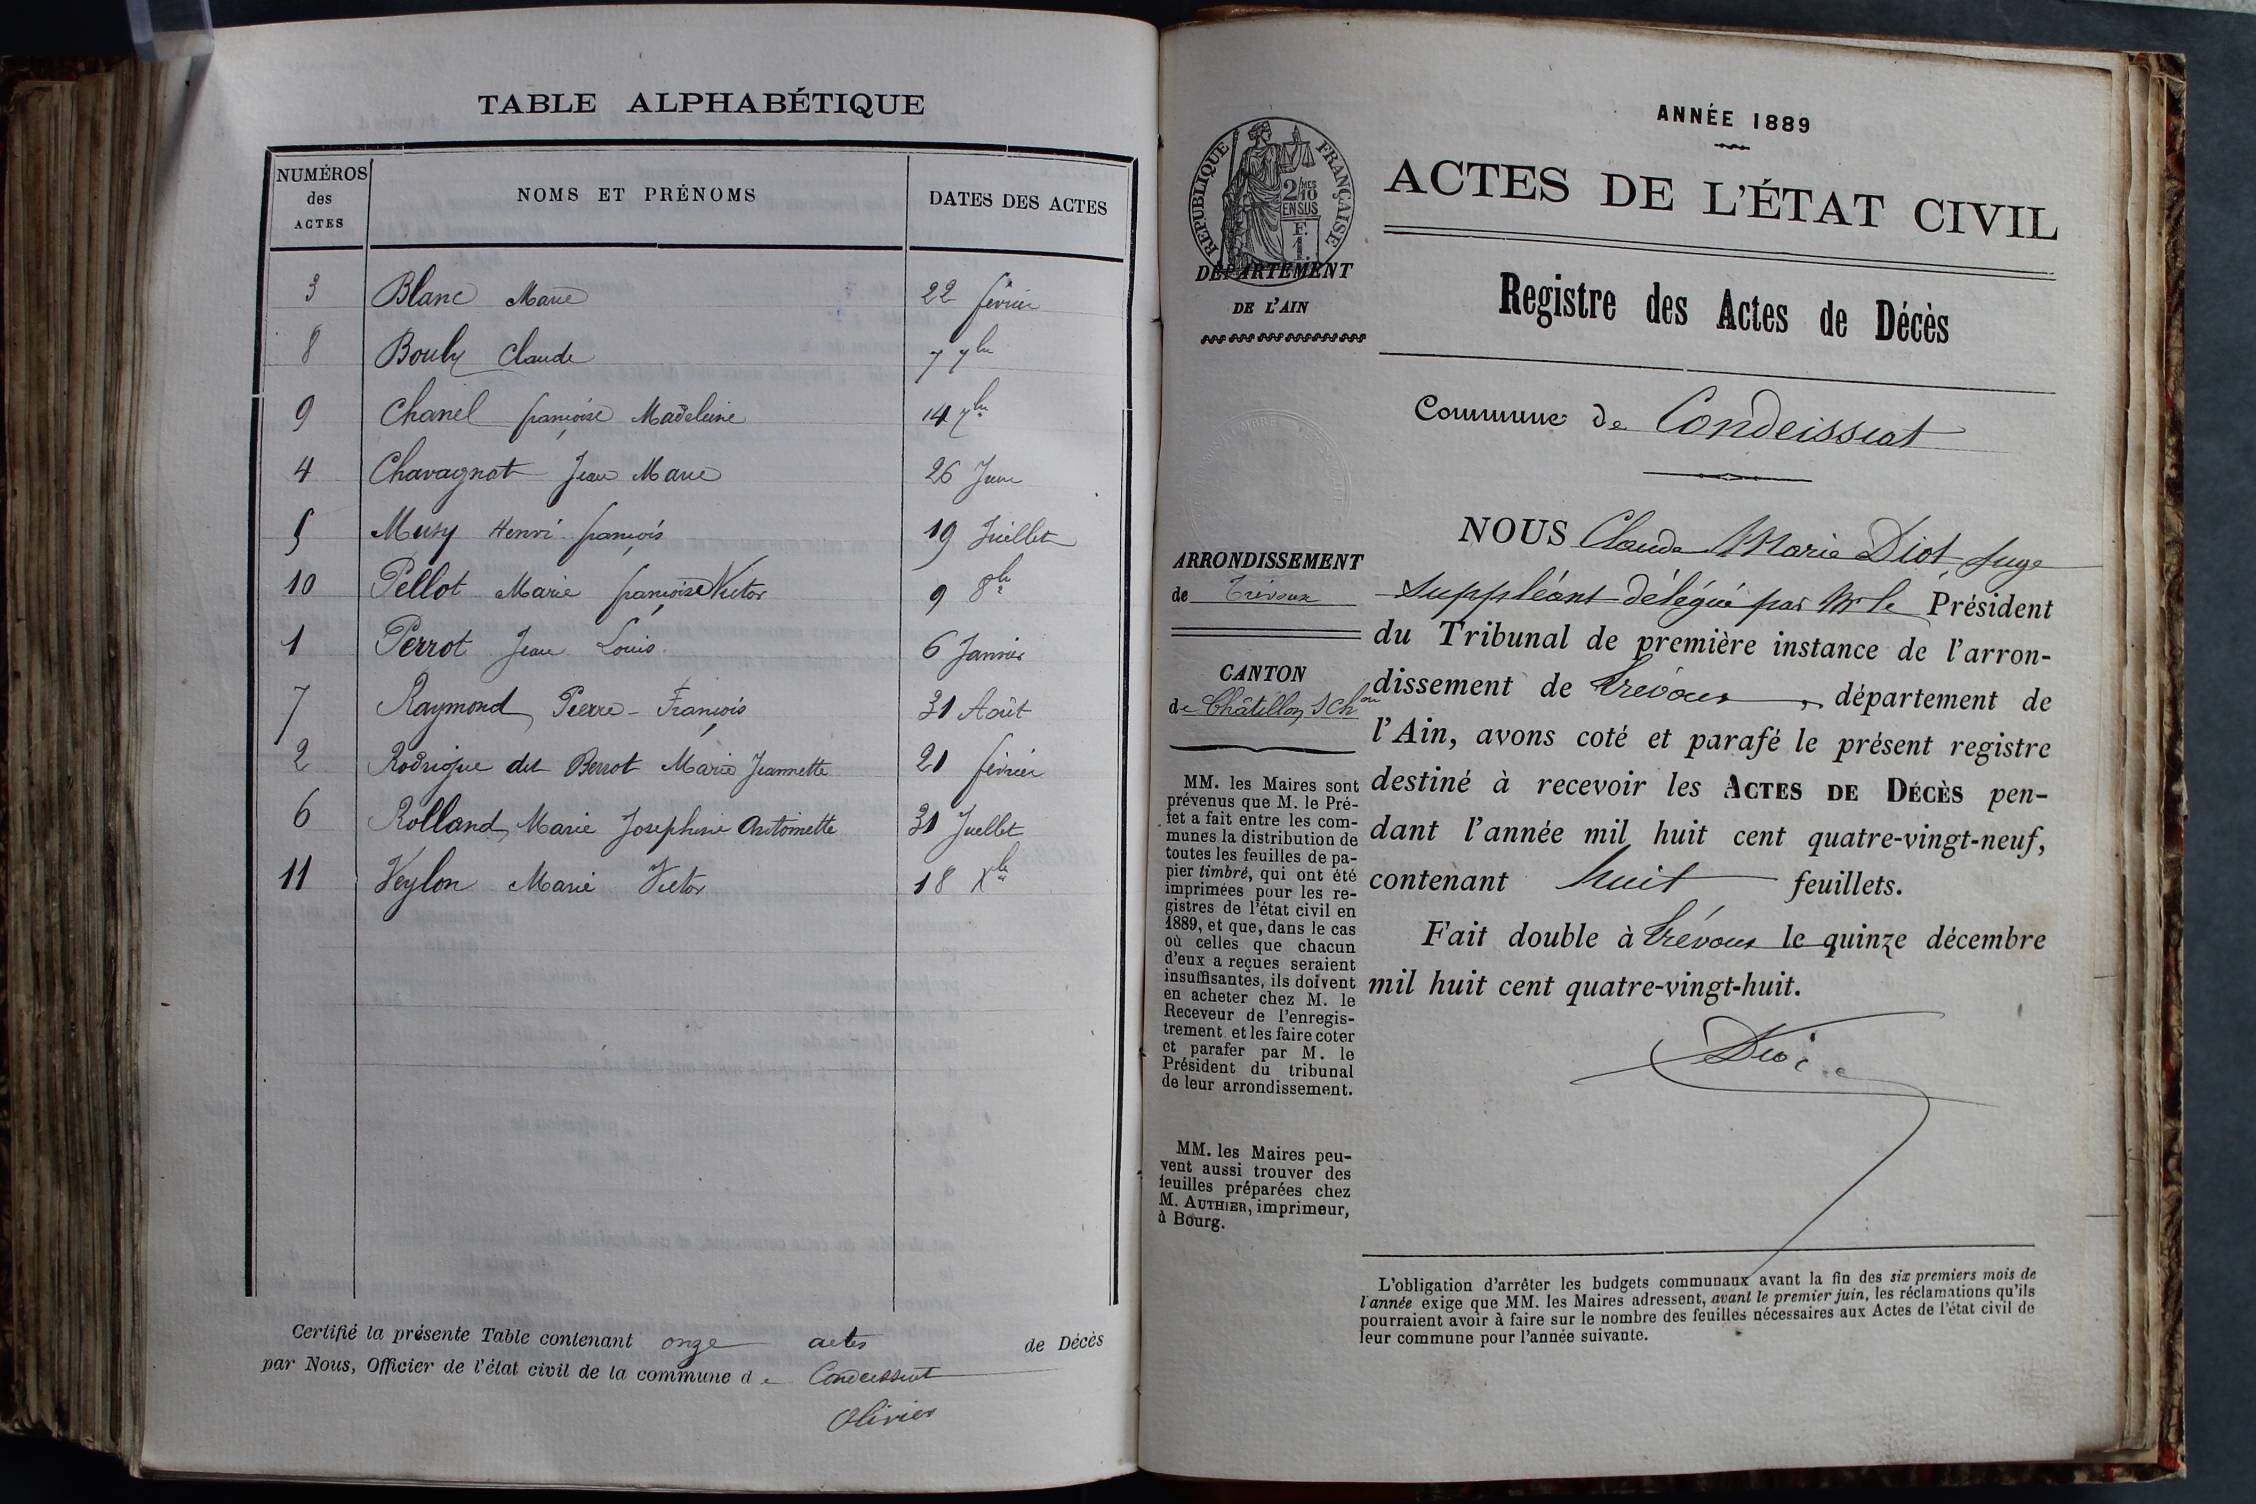 TABLE ALPHABÉTIQUE
NUMÉROS des ACTES NOMS ET PRÉNOMS DATES DES ACTES
3 Blanc Marie 22 février
8 Bouly Claude 7 7bre
9 Chanel françoise Madeleine 14 7bre
4 Chavagnat Jean Marie 26 Juin
5 Musy Henri françois 19 Juillet
10 Pellot Marie françoise Victor 9 8bre
1 Perrot Jean Louis 6 Janvier
7 Raymond Pierre-François 31 Août
2 Rodrigue dit Berrot Marie Jeannette 21 février
6 Rolland Marie Josephine Antoinette 31 Juillet
11 Veylon Marie Victor 18 Xbre
Certifié la présente Table contenant onze actes de Décès
par Nous, Officier de l'état civil de la commune de Condeissiat
Olivier
ANNÉE 1889
ACTES DE L'ÉTAT CIVIL
RÉPUBLIQUE FRANÇAISE
2/10 EN SUS
F. 1.
DÉPARTEMENT
DE L'AIN
Registre des Actes de Décès
Commune de Condeissiat
ARRONDISSEMENT
de Trévoux
CANTON
de Châtillon s Chne
MM. les Maires sont
prévenus que M. le Pré-
fet a fait entre les com-
munes la distribution de
toutes les feuilles de pa-
pier timbré, qui ont été
imprimées pour les re-
gistres de l'état civil en
1889, et que, dans le cas
où celles que chacun
d'eux a reçues seraient
insuffisantes, ils doivent
en acheter chez M. le
Receveur de l'enregis-
trement et les faire coter
et parafer par M. le
Président du tribunal
de leur arrondissement.
MM. les Maires peu-
vent aussi trouver des
feuilles préparées chez
M. AUTHIER, imprimeur,
à Bourg.
NOUS Claude Marie Diot, Juge
suppléant délégué par Mr le Président
du Tribunal de première instance de l'arron-
dissement de Trévoux, département de
l'Ain, avons coté et parafé le présent registre
destiné à recevoir les ACTES DE DÉCÈS pen-
dant l'année mil huit cent quatre-vingt-neuf,
contenant huit feuillets.
Fait double à Trévoux le quinze décembre
mil huit cent quatre-vingt-huit.
Diot
L'obligation d'arrêter les budgets communaux avant la fin des six premiers mois de
l'année exige que MM. les Maires adressent, avant le premier juin, les réclamations qu'ils
pourraient avoir à faire sur le nombre des feuilles nécessaires aux Actes de l'état civil de
leur commune pour l'année suivante.